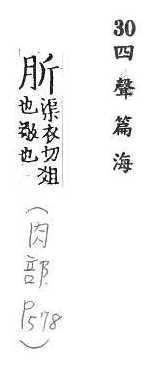 30 四聲篇海
肵
渠衣切俎
也敬也
(肉部 P578)